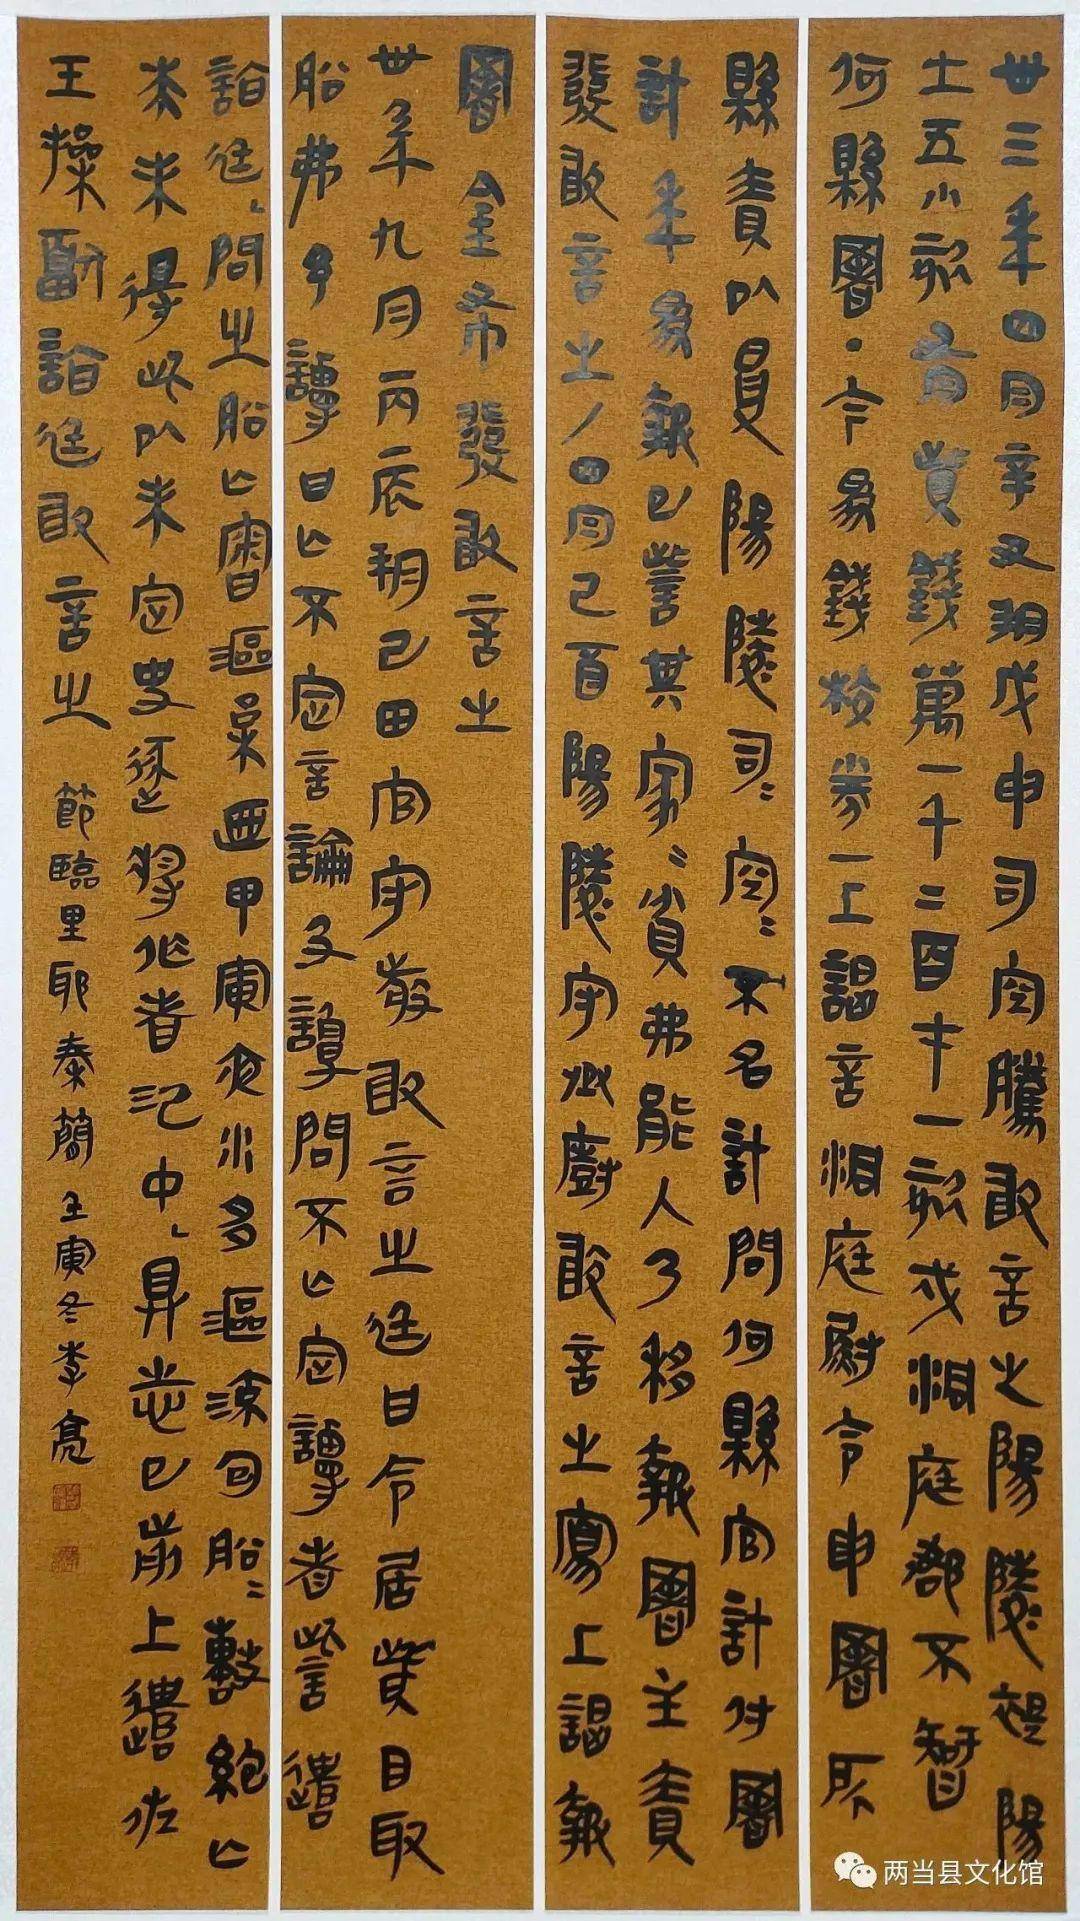 丗三年四月辛丑朔戊申司空騰敢言之陽陵褆陽
士五小欬有貲錢萬一千二百七十一欬戍洞庭郡不智
何縣署·今為錢校券一上謁言洞庭尉令申署所
縣責以受陽陵司=空=不名計問何縣官計付署
計年為報已訾其家=貧弗能入乃移報署主責
發敢言之/四月己酉陽陵守丞廚敢言之寫上謁報
署金布發敢言之
丗年九月丙辰朔己巳田官守敬敢言之廷曰令居貲目取
船弗予謾曰亡不定言論及讂問不亡定謾者訾遣
詣廷=問之船亡審漚枲廼甲寅夜水多漚流包船=繫絕亡
求未得此以未定史逐將作者汜中=具志已前上遣佐
王操副詣廷敢言之 節臨里耶秦簡 壬寅冬李亮
两当县文化馆